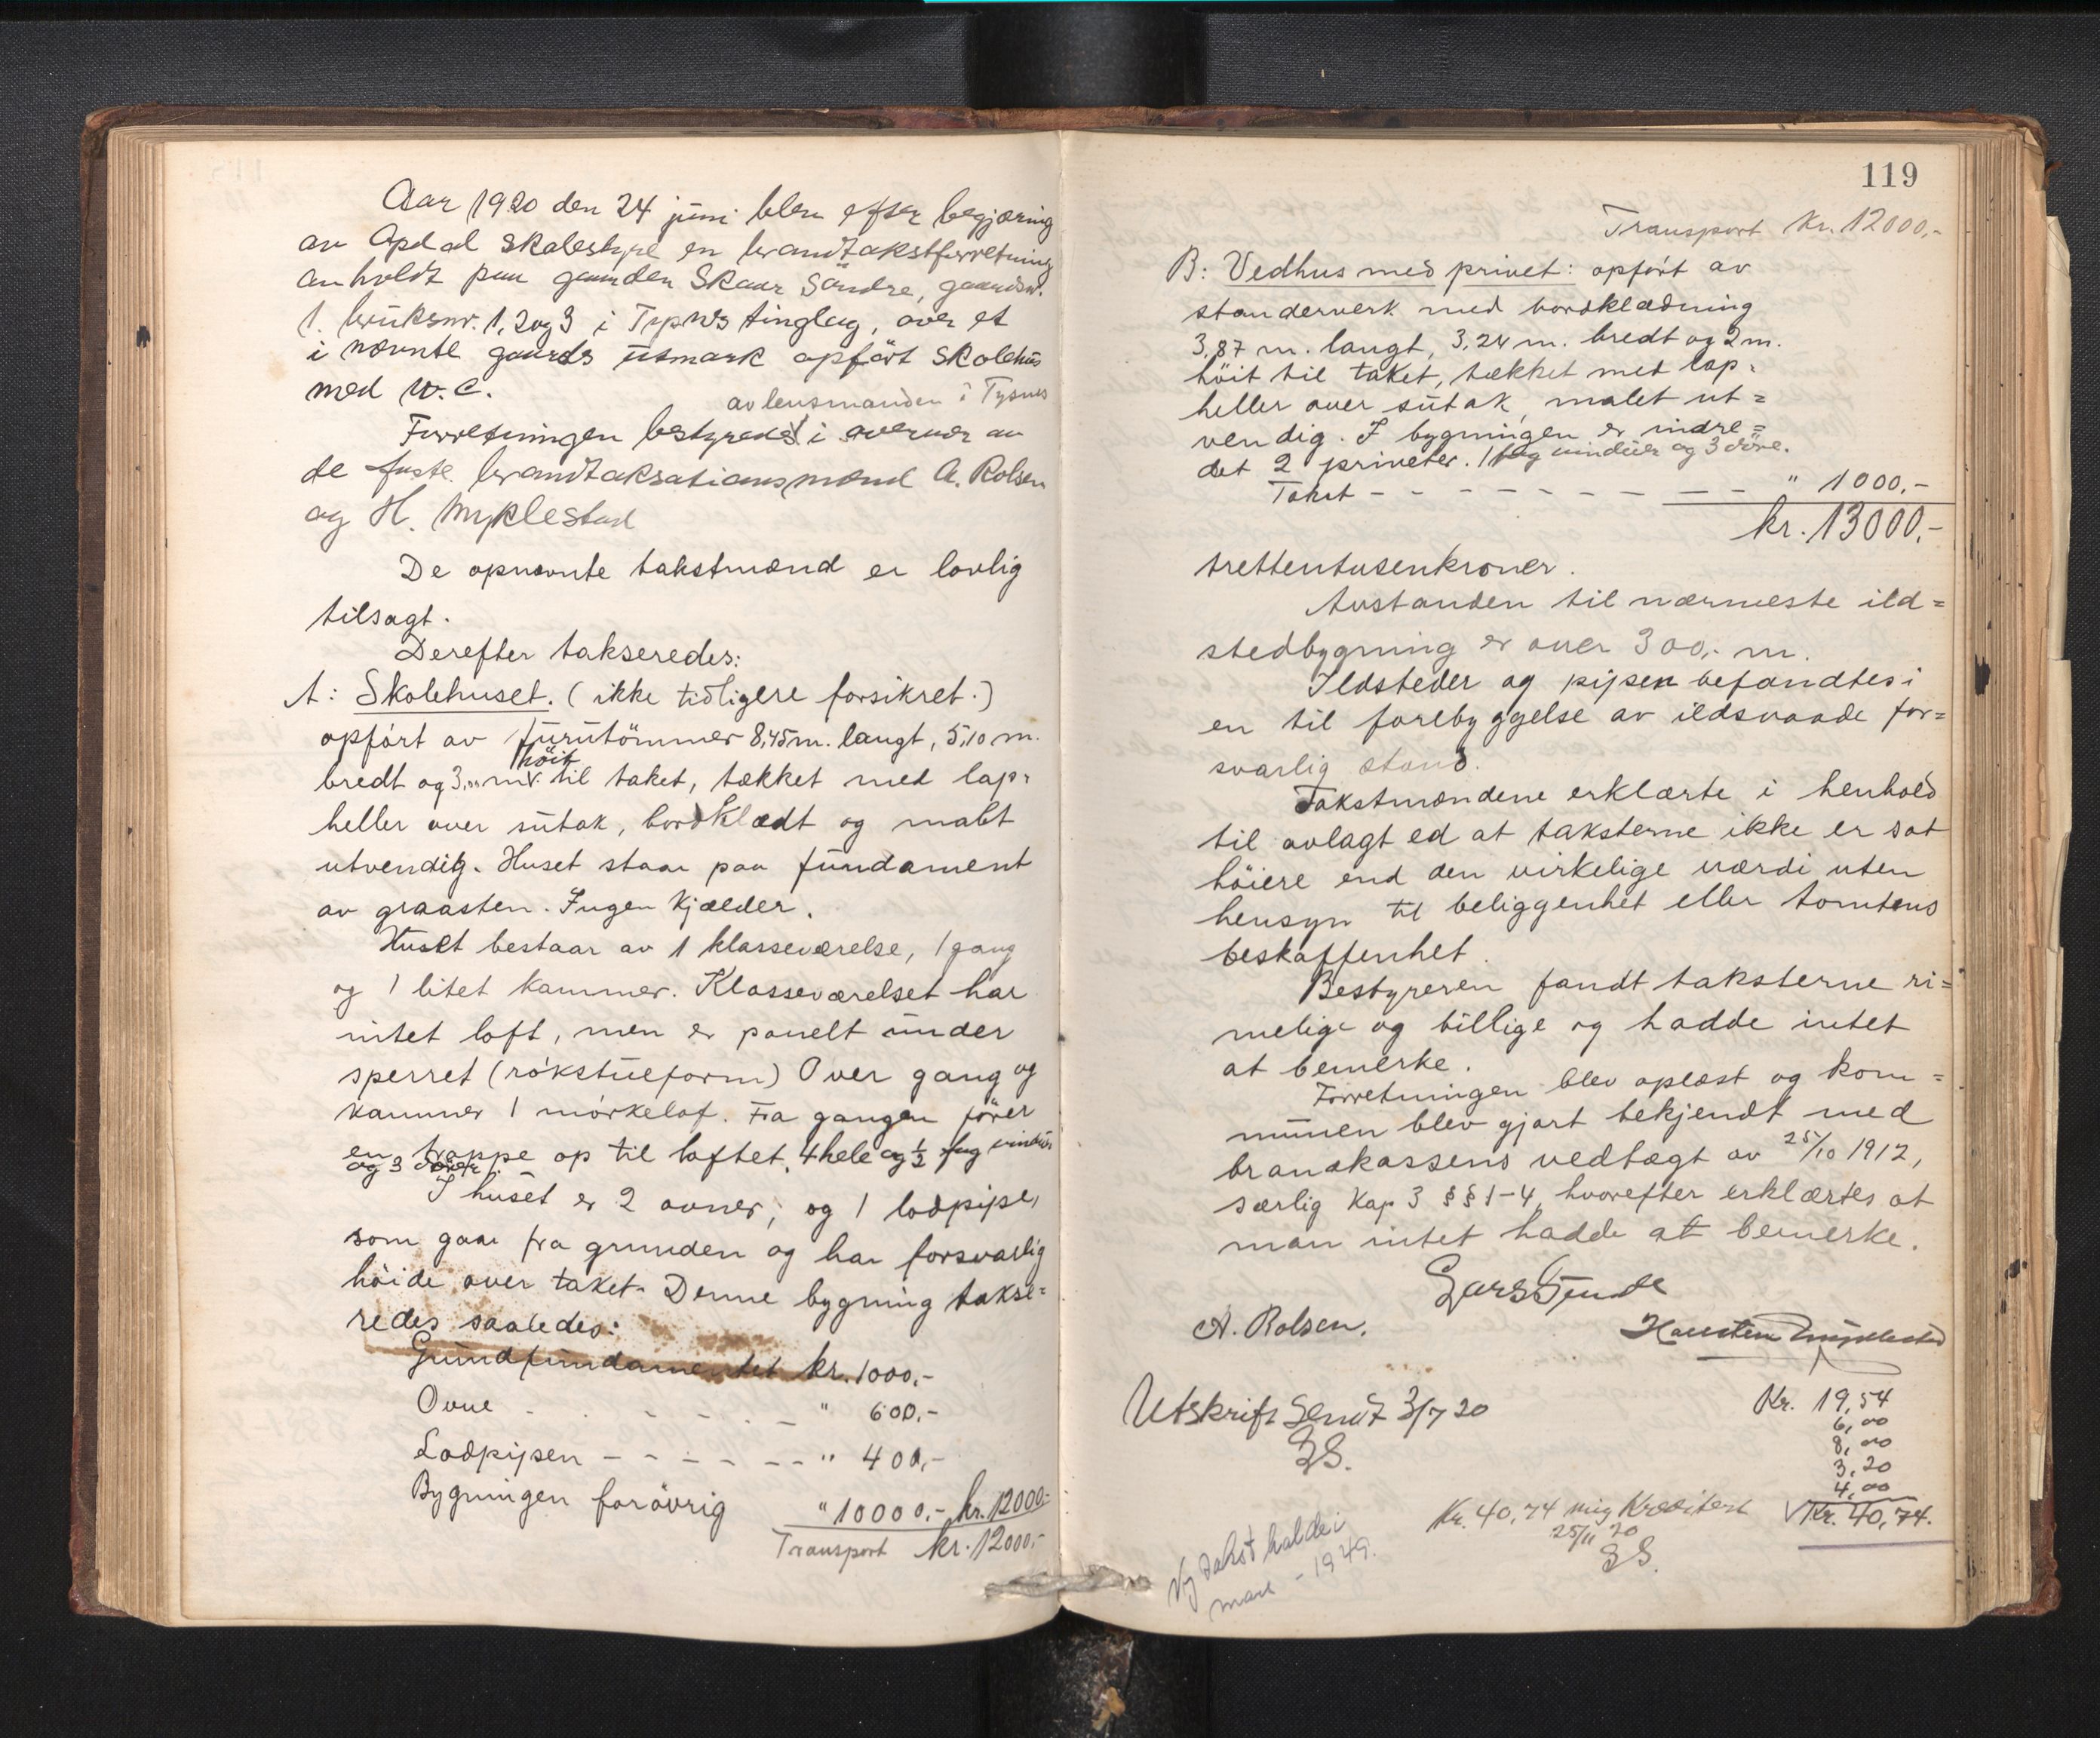 Aar 1920 den 24 juni blev efter begjæring
av Opdal skolestyre en brandtakstforretning
avholdt paa gaarden Skaar Söndre, gaardsnr.
1. bruksnr. 1, 2 og 3 i Tysnes tinglag, over et
i nævnte gaards utmark opfört Skolehus
med W.C.
av lensmanden i Tysnes
Forretningen bestyredes i overvær av
de faste brandtaksationsmænd A. Rolsen
og H. Myklestad
De opnævnte takstmænd er lovlig
tilsagt.
Derefter takseredes:
A: Skolehuset. (ikke tidligere forsikret.)
opført av furutömmer 8,45 m. langt, 5,10 m.
höit
bredt og 3,00 m. til taket, tækket med lap-
heller over sutak, bordklædt og malt
utvendig. Huset staar paa fundament
av graasten. Ingen kjælder.
Huset bestaar av 1 klasseværelse, 1 gang
og 1 litet kammer. Klasseværelset har
intet loft, men er panelt under
sperret (røkstueform) Over gang og
kammer 1 mørkelof. Fra gangen förer
en trappe op til loftet. 4 hele og 1/2 fag vinduer
og 3 dører.
I huset er 2 ovner, og 1 lodpipe,
som gaar fra grunden og har forsvarlig
höide over taket. Denne bygning takse=
redes saaledes:
Grundfundamentet kr. 1000,-
Ovne - - - - - " 600,-
Lodpipen - - - - - - " 400,-
Bygningen forövrig " 10000,- kr. 12000,-
Transport kr. 12000,-
119
Transport kr. 12000,-
B: Vedhus med privet: opført av
standerverk med bordklædning
3,87 m. langt, 3,24 m. bredt og 2 m.
höit til taket, tækket med lap-
heller over sutak, malet ut=
vendig. I bygningen er indre=
det 2 priveter. 1 fag vinduer og 3 döre.
Takst - - - - - - - - - " 1000,-
kr. 13000,-
trettentusenkroner.
Avstanden til nærmeste ild=
stedbygning er over 300,- m.
Ildsteder og pipen befandtes i
en til forebyggelse av ildsvaade for=
svarlig stand.
Takstmændene erklærte i henhold
til avlagt ed at taksterne ikke er sat
höiere end den virkelige værdi uten
hensyn til beliggenhet eller tomtens
beskaffenhet.
Bestyreren fandt taksterne ri=
melige og billige og hadde intet
at bemerke.
Forretningen blev oplæst og kom=
munen blev gjort bekjendt med
brandkassens vedtægt av 25/10 1912,
særlig Kap 3 §§ 1-4, hvorefter erklærtes at
man intet hadde at bemerke.
Lars Tjunde
A. Rolsen.
Karsten Myklestad
Utskrift Sendt 3/7 20
Kr. 19,54
6,00
8,00
3,20
4,00
Kr. 40,74.
Kr. 40,74 mig krediteret
25/11 20
Ny takst halde i
mars - 1949.